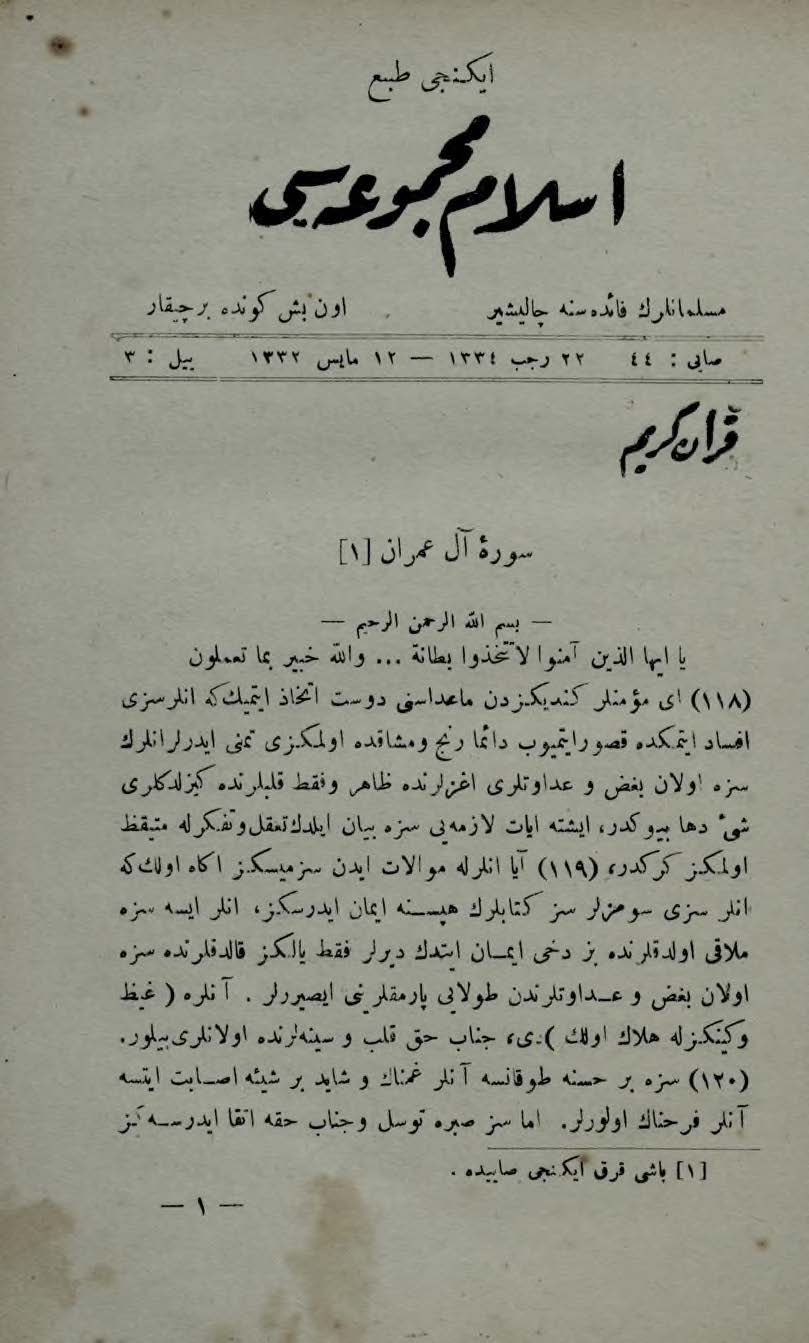 ایکنجی طبع
اسلام مجموعه سی
مسلمانلرك فائده سنه چالیشیر اون بش کونده بر چیقار
صایی : ٤٤ ٢٢ رجب ١٣٣٤ — ١٢ مایس ١٣٣٢ ییل : ٣
قرآن کریم
سورۀ آل عمران [١]
— بسم الله الرحمن الرحیم —
یا ایها الذین آمنوا لا تتخذوا بطانة ... والله خبیر بما تعملون
(١١٨) ای مؤمنلر کندیکزدن ماعداسنی دوست اتخاذ ایتمیك که انلر سزی
افساد ایتمکده قصور ایتمیوب دائما رنج ومشاقده اولمکزی تمنی ایدرلر انلرك
سزه اولان بغض و عداوتلری اغزلرنده ظاهر وفقط قلبلرنده کیزلدکلری
شیء دها بیوکدر، ایشته ایات لازمه یی سزه بیان ایلدك تعقل وتفکرله متیقظ
اولمکز کرکدر، (١١٩) آیا انلرله موالات ایدن سزمیسکز اکاه اولك که
انلر سزی سومزلر سز کتابلرك هپسنه ایمان ایدرسکز، انلر ایسه سزه
ملاقی اولدقلرنده بز دخی ایمان ایتدك دیرلر فقط یالکز قالدقلرنده سزه
اولان بغض و عداوتلرندن طولایی پارمقلرینی ایصیررلر . آنلره ( غیظ
وکینکزله هلاك اولك ) دی، جناب حق قلب و سینه لرنده اولانلری بیلور.
(١٢٠) سزه بر حسنه طوقانسه آنلر غمناك و شاید بر شیئه اصابت ایتسه
آنلر فرحناك اولورلر. اما سز صبره توسل وجناب حقه اتقا ایدرسه کز
[١] باشی قرق ایکنجی صاییده .
— ١ —